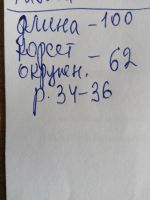 длина - 100
корсет
окружн. - 62
р. 34-36